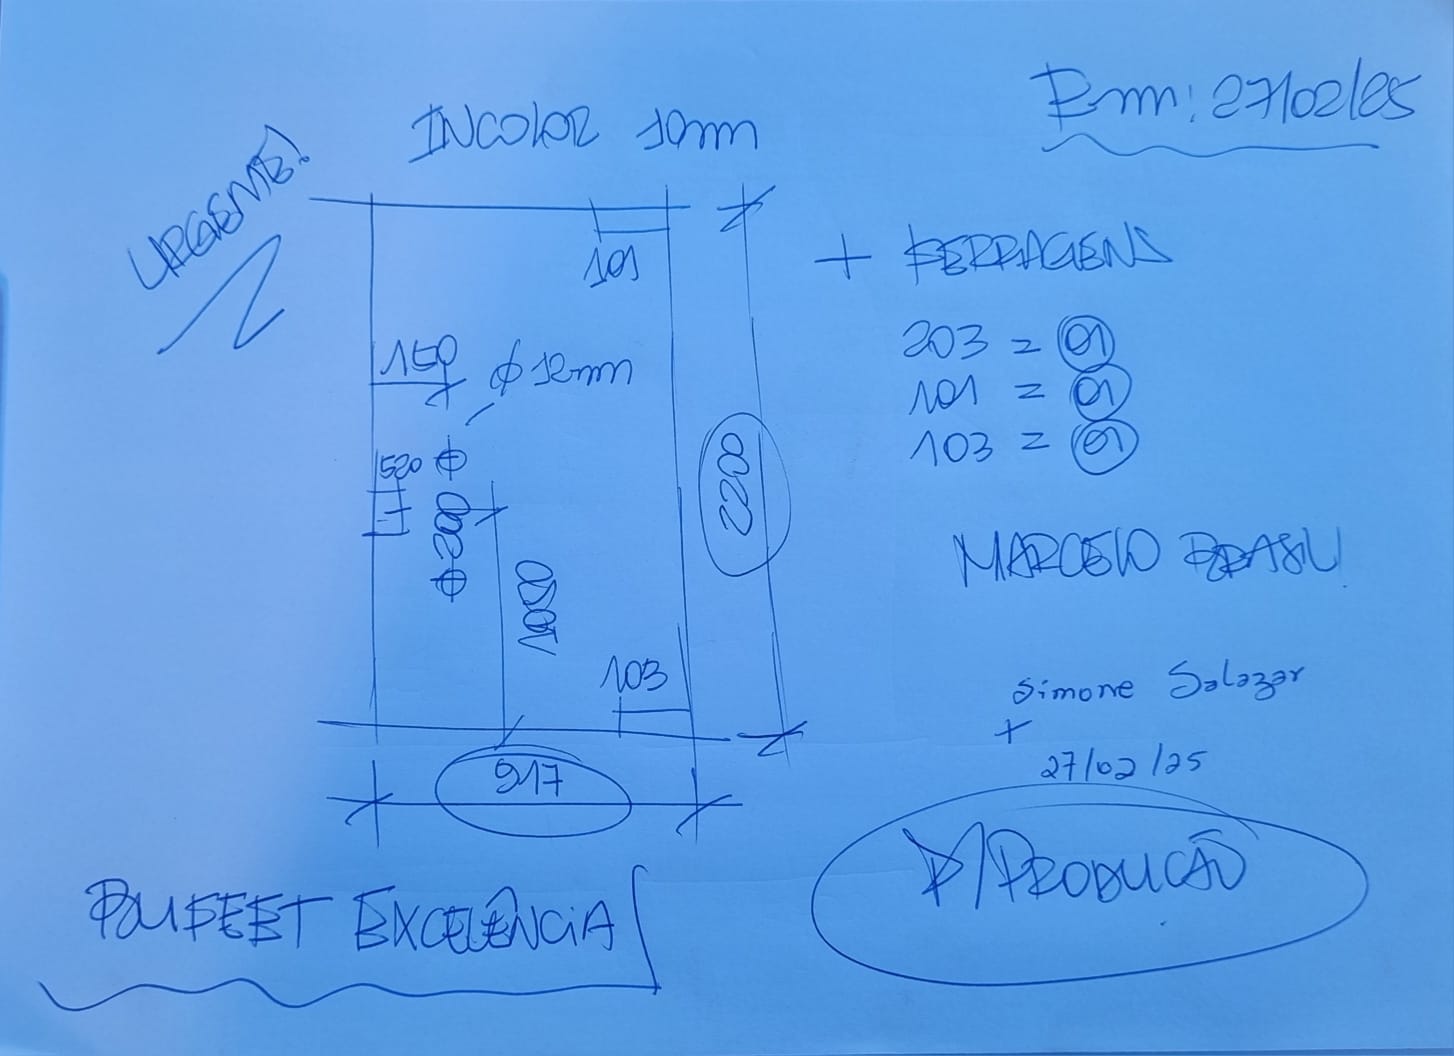 Em: 27/02/25
INCOLOR 10mm
URGENTE!
101
150
Φ12mm
520
200
1050
2200
103
917
+ FERRAGENS
203 = 01
101 = 01
103 = 01
MARCELO BRASIL
Simone Salazar
+
27/02/25
P/PRODUCÃO
BUFFEET EXCELÊNCIA